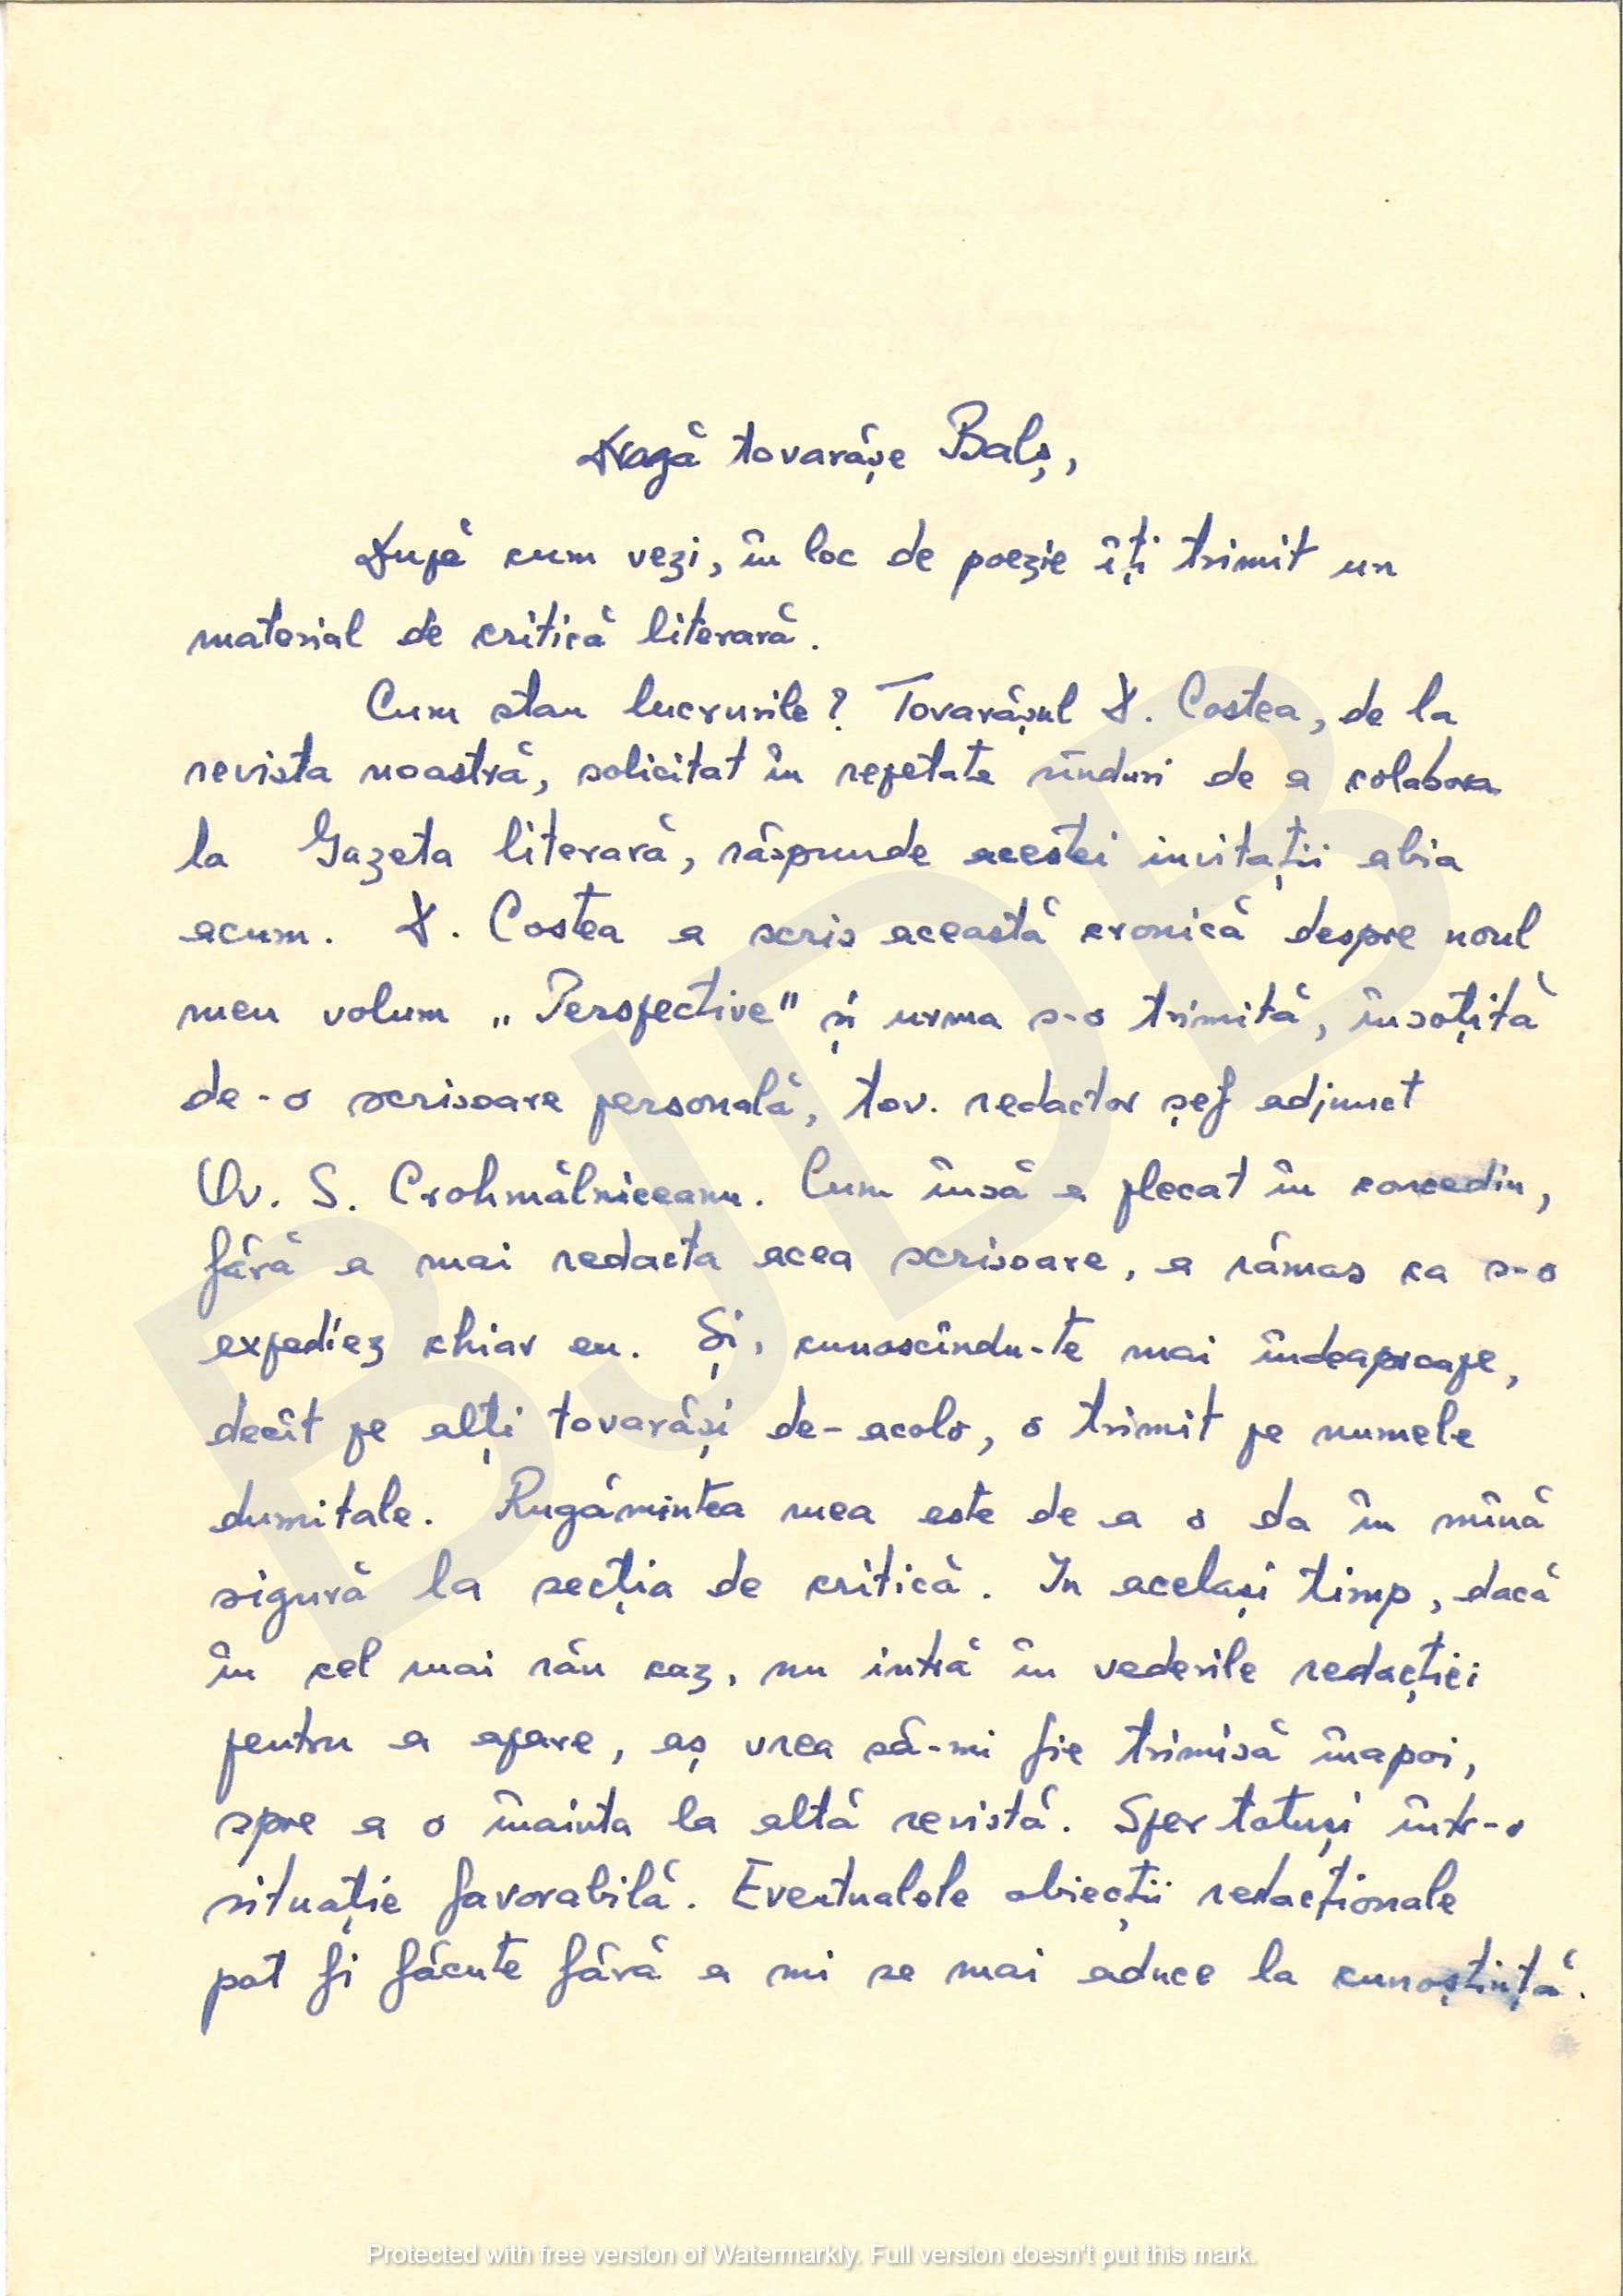 Dragă tovarășe Balș,
După cum vezi, în loc de poezie îți trimit un
material de critică literară.
Cum stau lucrurile? Tovarășul D. Costea, de la
revista noastră, solicitat în repetate rînduri de a colabora
la Gazeta literară, răspunde acestei invitații abia
acum. D. Costea a scris această cronică despre noul
meu volum „Perspective" și urma s-o trimită, însoțită
de-o scrisoare personală, tov. redactor șef adjunct
Ov. S. Crohmălniceanu. Cum însă a plecat în concediu,
fără a mai redacta acea scrisoare, a rămas ca s-o
expediez chiar eu. Și, cunoscîndu-te mai îndeaproape,
decît pe alți tovarăși de-acolo, o trimit pe numele
dumitale. Rugămintea mea este de a o da în mînă
sigură la secția de critică. In același timp, dacă
în cel mai rău caz, nu intră în vederile redacției
pentru a apare, aș vrea să-mi fie trimisă înapoi,
spre a o înainta la altă revistă. Sper totuși într-o
situație favorabilă. Eventualele obiecții redacționale
pot fi făcute fără a mi se mai aduce la cunoștință.
BJDB
Protected with free version of Watermarkly. Full version doesn't put this mark.